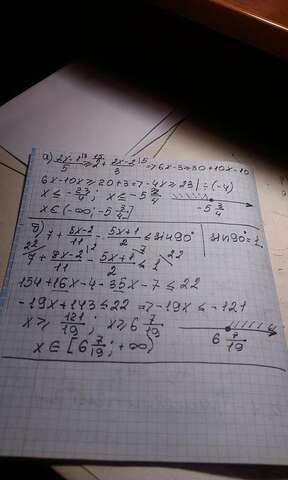 а) (2x-1)/5 ≥ 2 + (2x-2)/3 ⇒ 6x-3 ≥ 30+10x-10
6x-10x ≥ 20+3 ⇒ -4x ≥ 23 | ÷(-4)
x ≤ -23/4; x ≤ -5 3/4
-5 3/4
x ∈ (-∞; -5 3/4]
б) 7 + (8x-2)/11 - (5x+1)/2 ≤ sin90°
sin90° = 1
7 + (8x-2)/11 - (5x+1)/2 ≤ 1
154+16x-4-35x-7 ≤ 22
-19x+143 ≤ 22 ⇒ -19x ≤ -121
x ≥ 121/19; x ≥ 6 7/19
6 7/19
x ∈ [6 7/19; +∞)